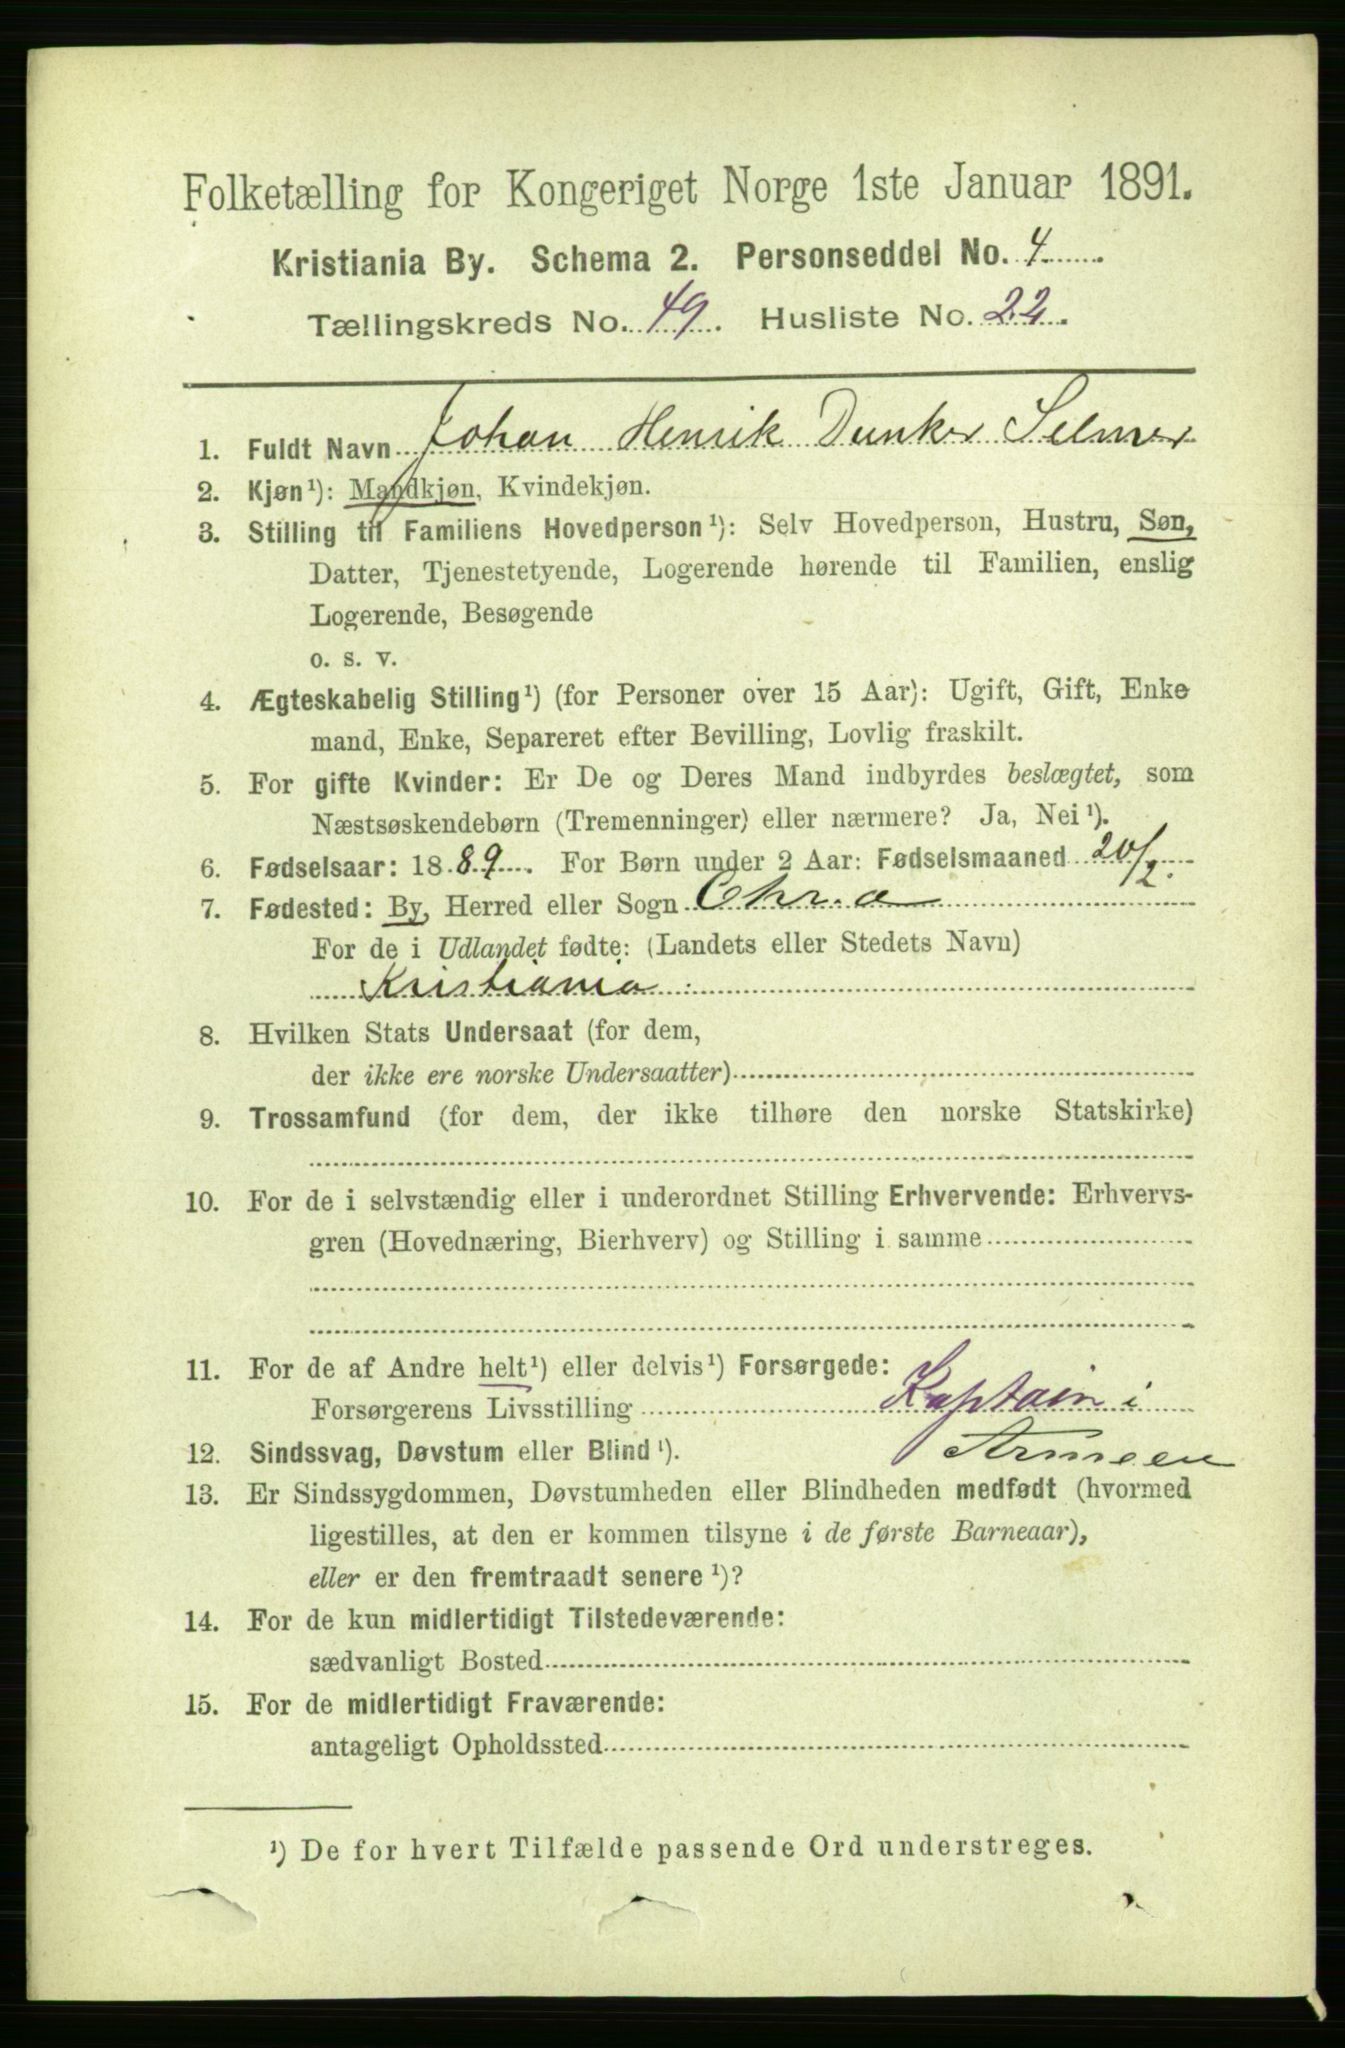 Folketælling for Kongeriget Norge 1ste Januar 1891.
Kristiania By. Schema 2. Personseddel No. 4
Tællingskreds No. 49. Husliste No. 22.
1. Fuldt Navn Johan Henrik Dunker Selmer
2. Kjøn¹): Mandkjøn, Kvindekjøn.
3. Stilling til Familiens Hovedperson¹): Selv Hovedperson, Hustru, Søn,
Datter, Tjenestetyende, Logerende hørende til Familien, enslig
Logerende, Besøgende
o. s. v.
4. Ægteskabelig Stilling¹) (for Personer over 15 Aar): Ugift, Gift, Enke
mand, Enke, Separeret efter Bevilling, Lovlig fraskilt.
5. For gifte Kvinder: Er De og Deres Mand indbyrdes beslægtet, som
Næstsøskendebørn (Tremenninger) eller nærmere? Ja, Nei¹).
6. Fødselsaar: 1889. For Børn under 2 Aar: Fødselsmaaned 20/2.
7. Fødested: By, Herred eller Sogn Chr.a
For de i Udlandet fødte: (Landets eller Stedets Navn)
Kristiania
8. Hvilken Stats Undersaat (for dem,
der ikke ere norske Undersaatter)
9. Trossamfund (for dem, der ikke tilhøre den norske Statskirke)
10. For de i selvstændig eller i underordnet Stilling Erhvervende: Erhvervs-
gren (Hovednæring, Bierhverv) og Stilling i samme
11. For de af Andre helt¹) eller delvis¹) Forsørgede:
Forsørgerens Livsstilling Kaptain i
12. Sindssvag, Døvstum eller Blind¹). Armeen
13. Er Sindssygdommen, Døvstumheden eller Blindheden medfødt (hvormed
ligestilles, at den er kommen tilsyne i de første Barneaar),
eller er den fremtraadt senere¹)?
14. For de kun midlertidigt Tilstedeværende:
sædvanligt Bosted
15. For de midlertidigt Fraværende:
antageligt Opholdssted
¹) De for hvert Tilfælde passende Ord understreges.